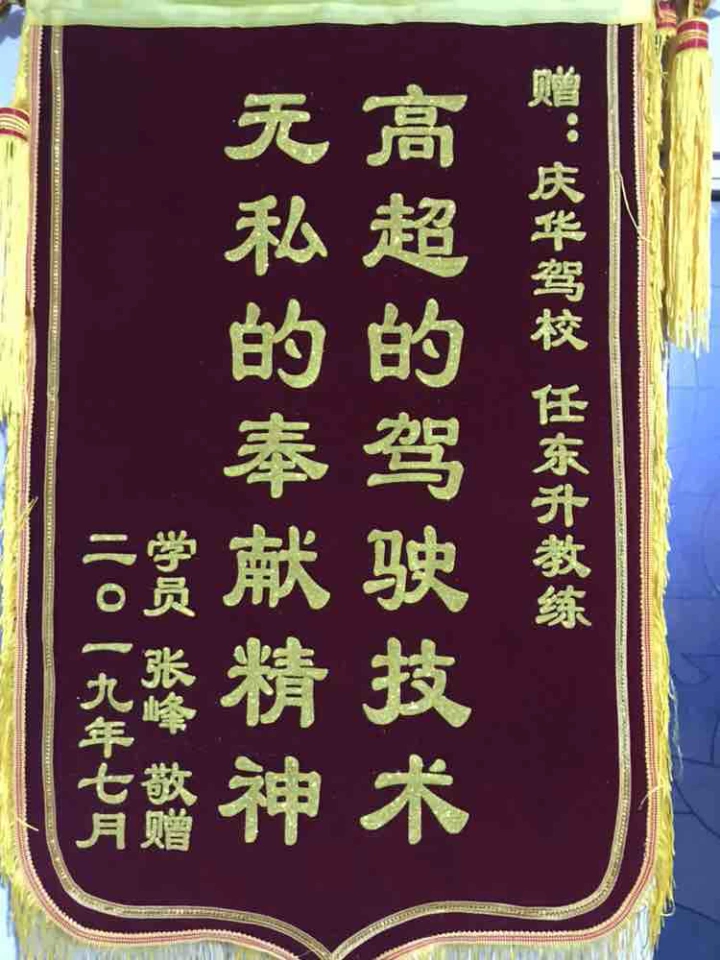 赠：庆华驾校 任东升教练
高超的驾驶技术
无私的奉献精神
学员 张峰 敬赠
二〇一九年七月